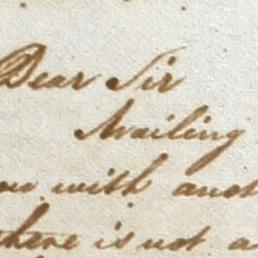 Dear Sir
Availing
with
there is not a